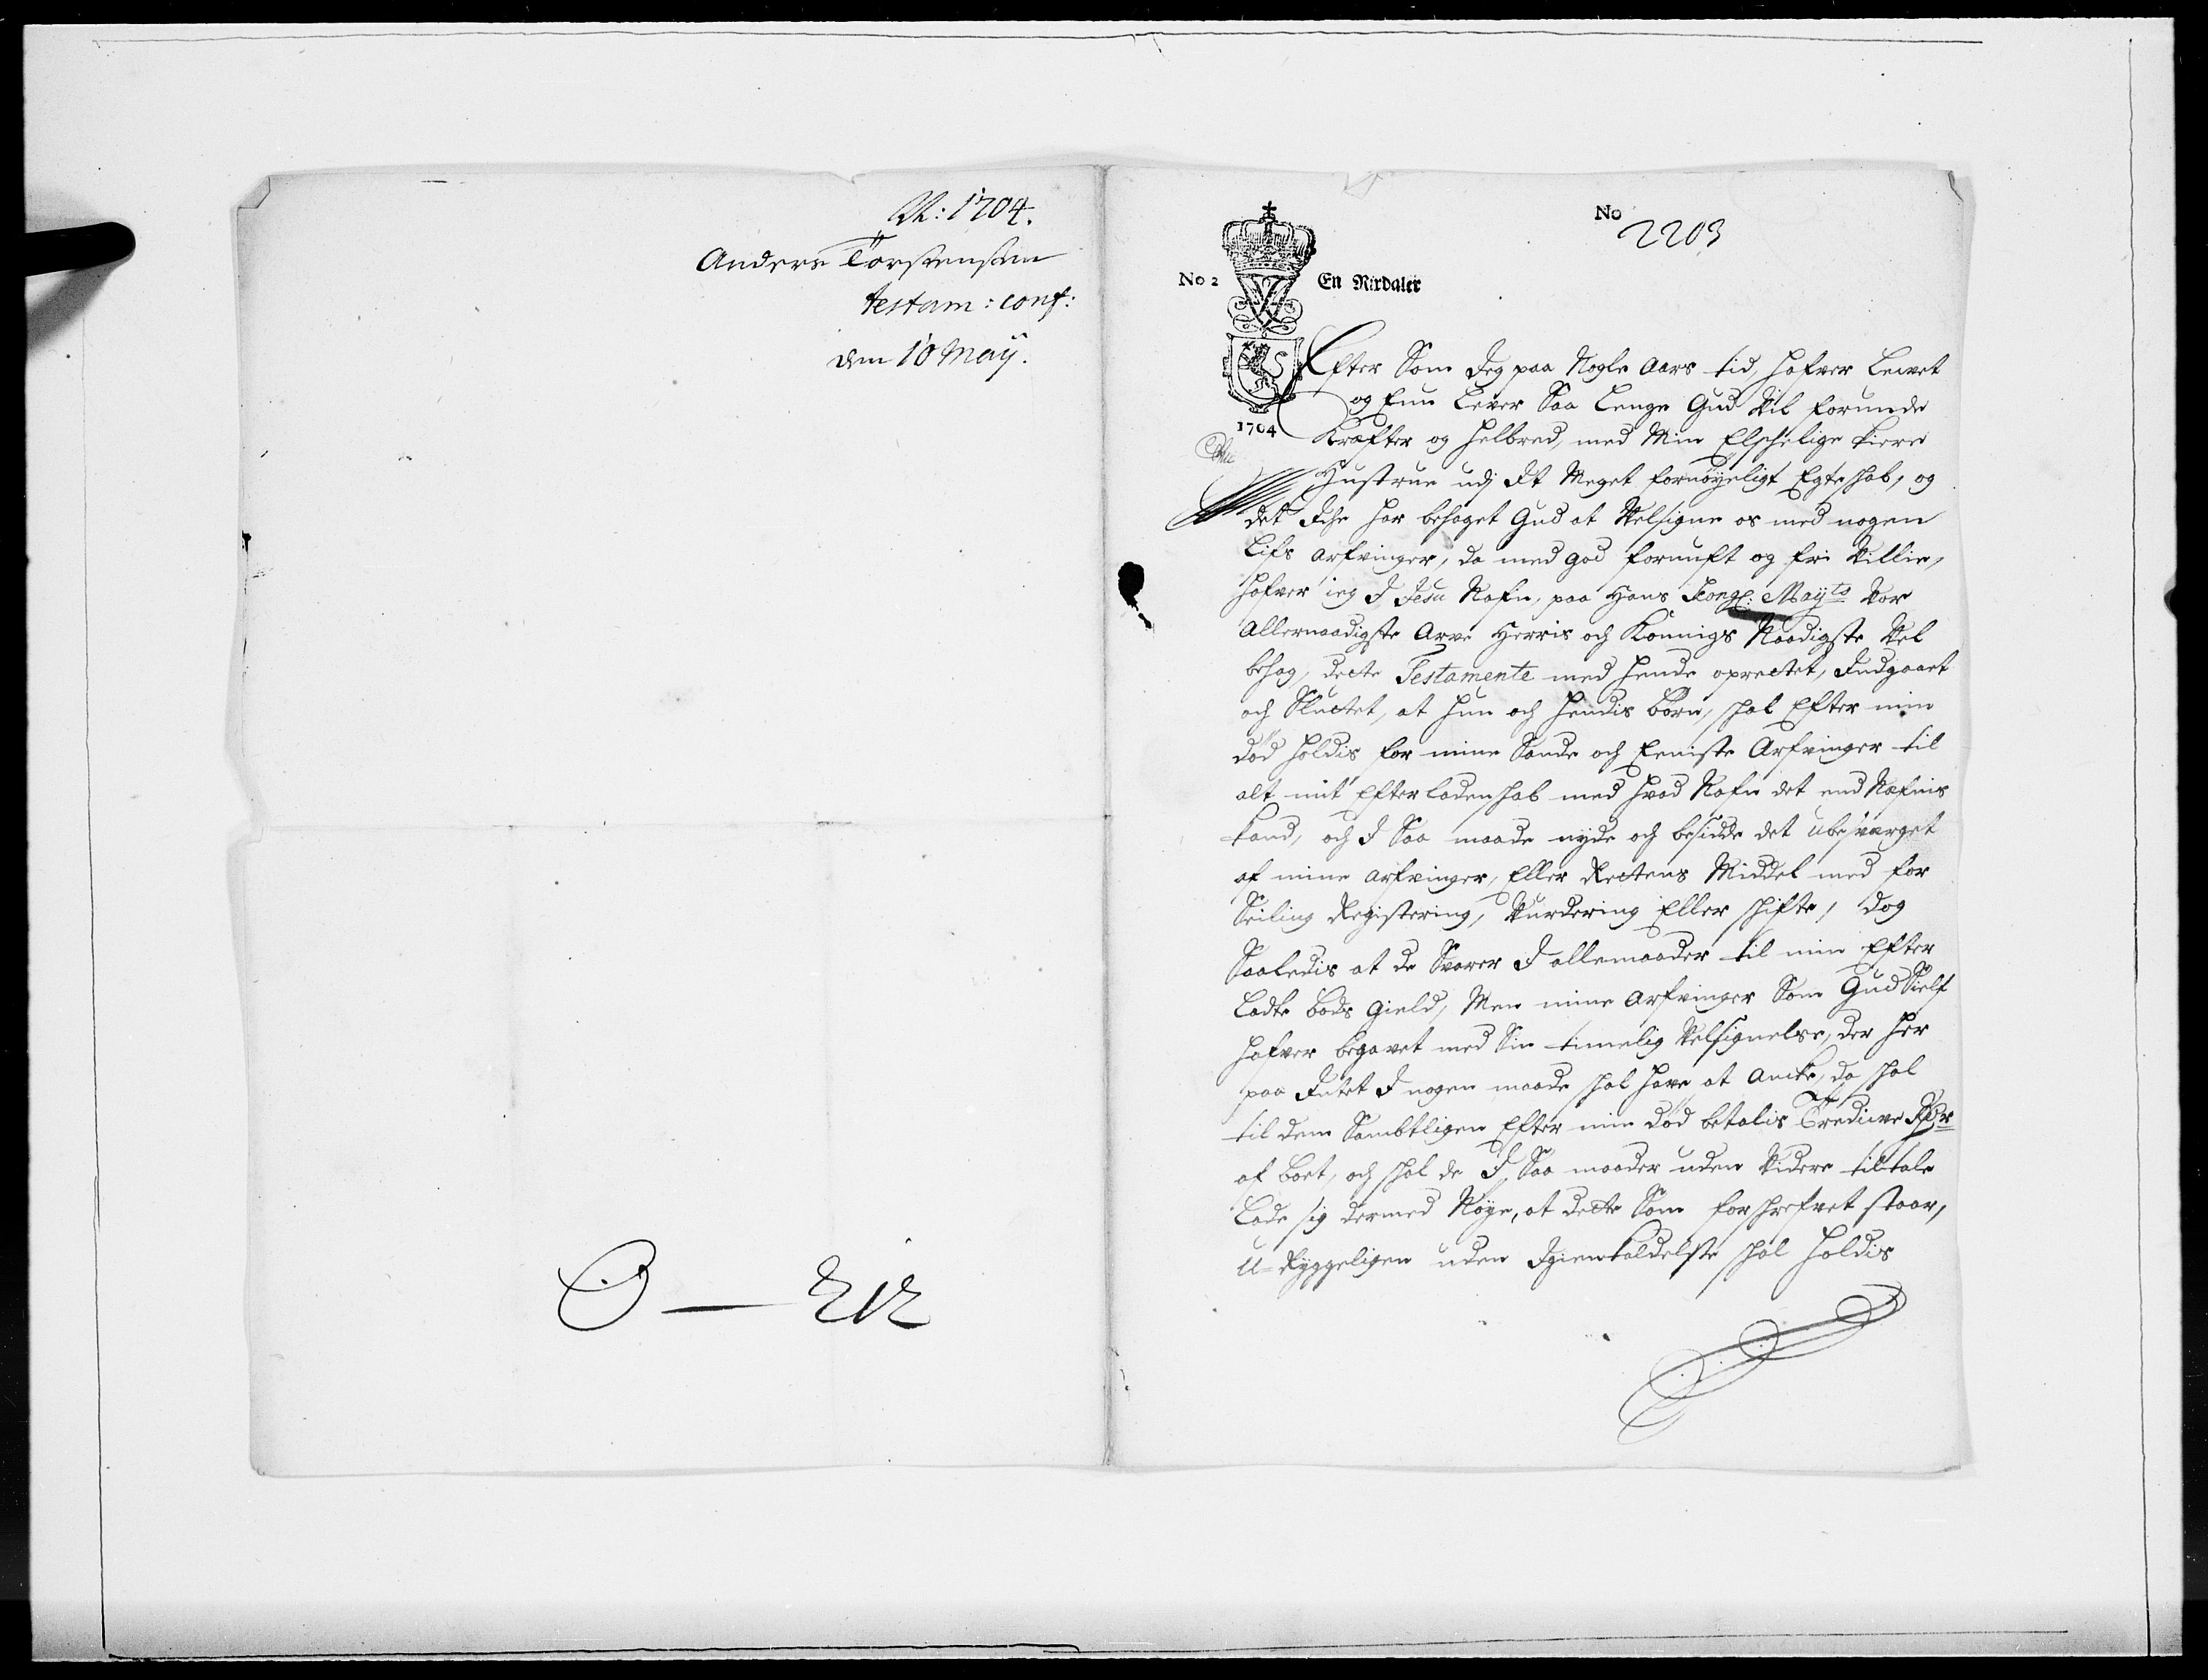 A: 1704.
Anders Torstensøn
testam: conf:
den 10 Maÿ.
No
2203
No 2
En Rixdaler
1704
Efter Som Jeg paa Nogle Aars tid, hafver Levet
og Enn Lever Saa Lenge Gud Vil forunde
Kræfter og Helbred, med Min Elschelige kiere
Hustrue udj Et Meget fornøyeligt Egteschab, og
det Iche har behaget Gud at Velsigne os med nogen
Lifs arfvinger, da med god fornuft og fri Villie,
hafver ieg I Jesu Nafn, paa Hans Kongl: Maÿts Vor
Allernaadigste Arve Herris och Konnigs Naadigste Vel
behag, dette Testamente med hende oprettet, Indgaaet
och Sluttet, at hun och hendis børn, schal Efter min
død holdis for mine Sande och Eeniste Arfvinger til
alt mit Efterladenschab med hvad Nafn det end Næfnis
kand, och I Saa maade nyde och besidde det ubesværget
af mine arfvinger, Eller Rettens Middel med for
Seiling Registering, Vurdering Eller schifte, dog
Saaledis at de Svarer I allemaader til min Efter
Ladte bods gield, Men mine arfvinger Som Gud Sielf
hafver begavet med Sin timelig Velsignelse, der her
paa Intet I nogen maade schal have at Ancke, da schal
til dem Sambtligen Efter min død betalis Tredive Rdr
af boet, och schal de I Saa maader uden Videre tiltale
Lade sig dermed Nøye, at dette Som forschrefvet staar,
U-Ryggeligen uden Igienkaldelse schal holdis